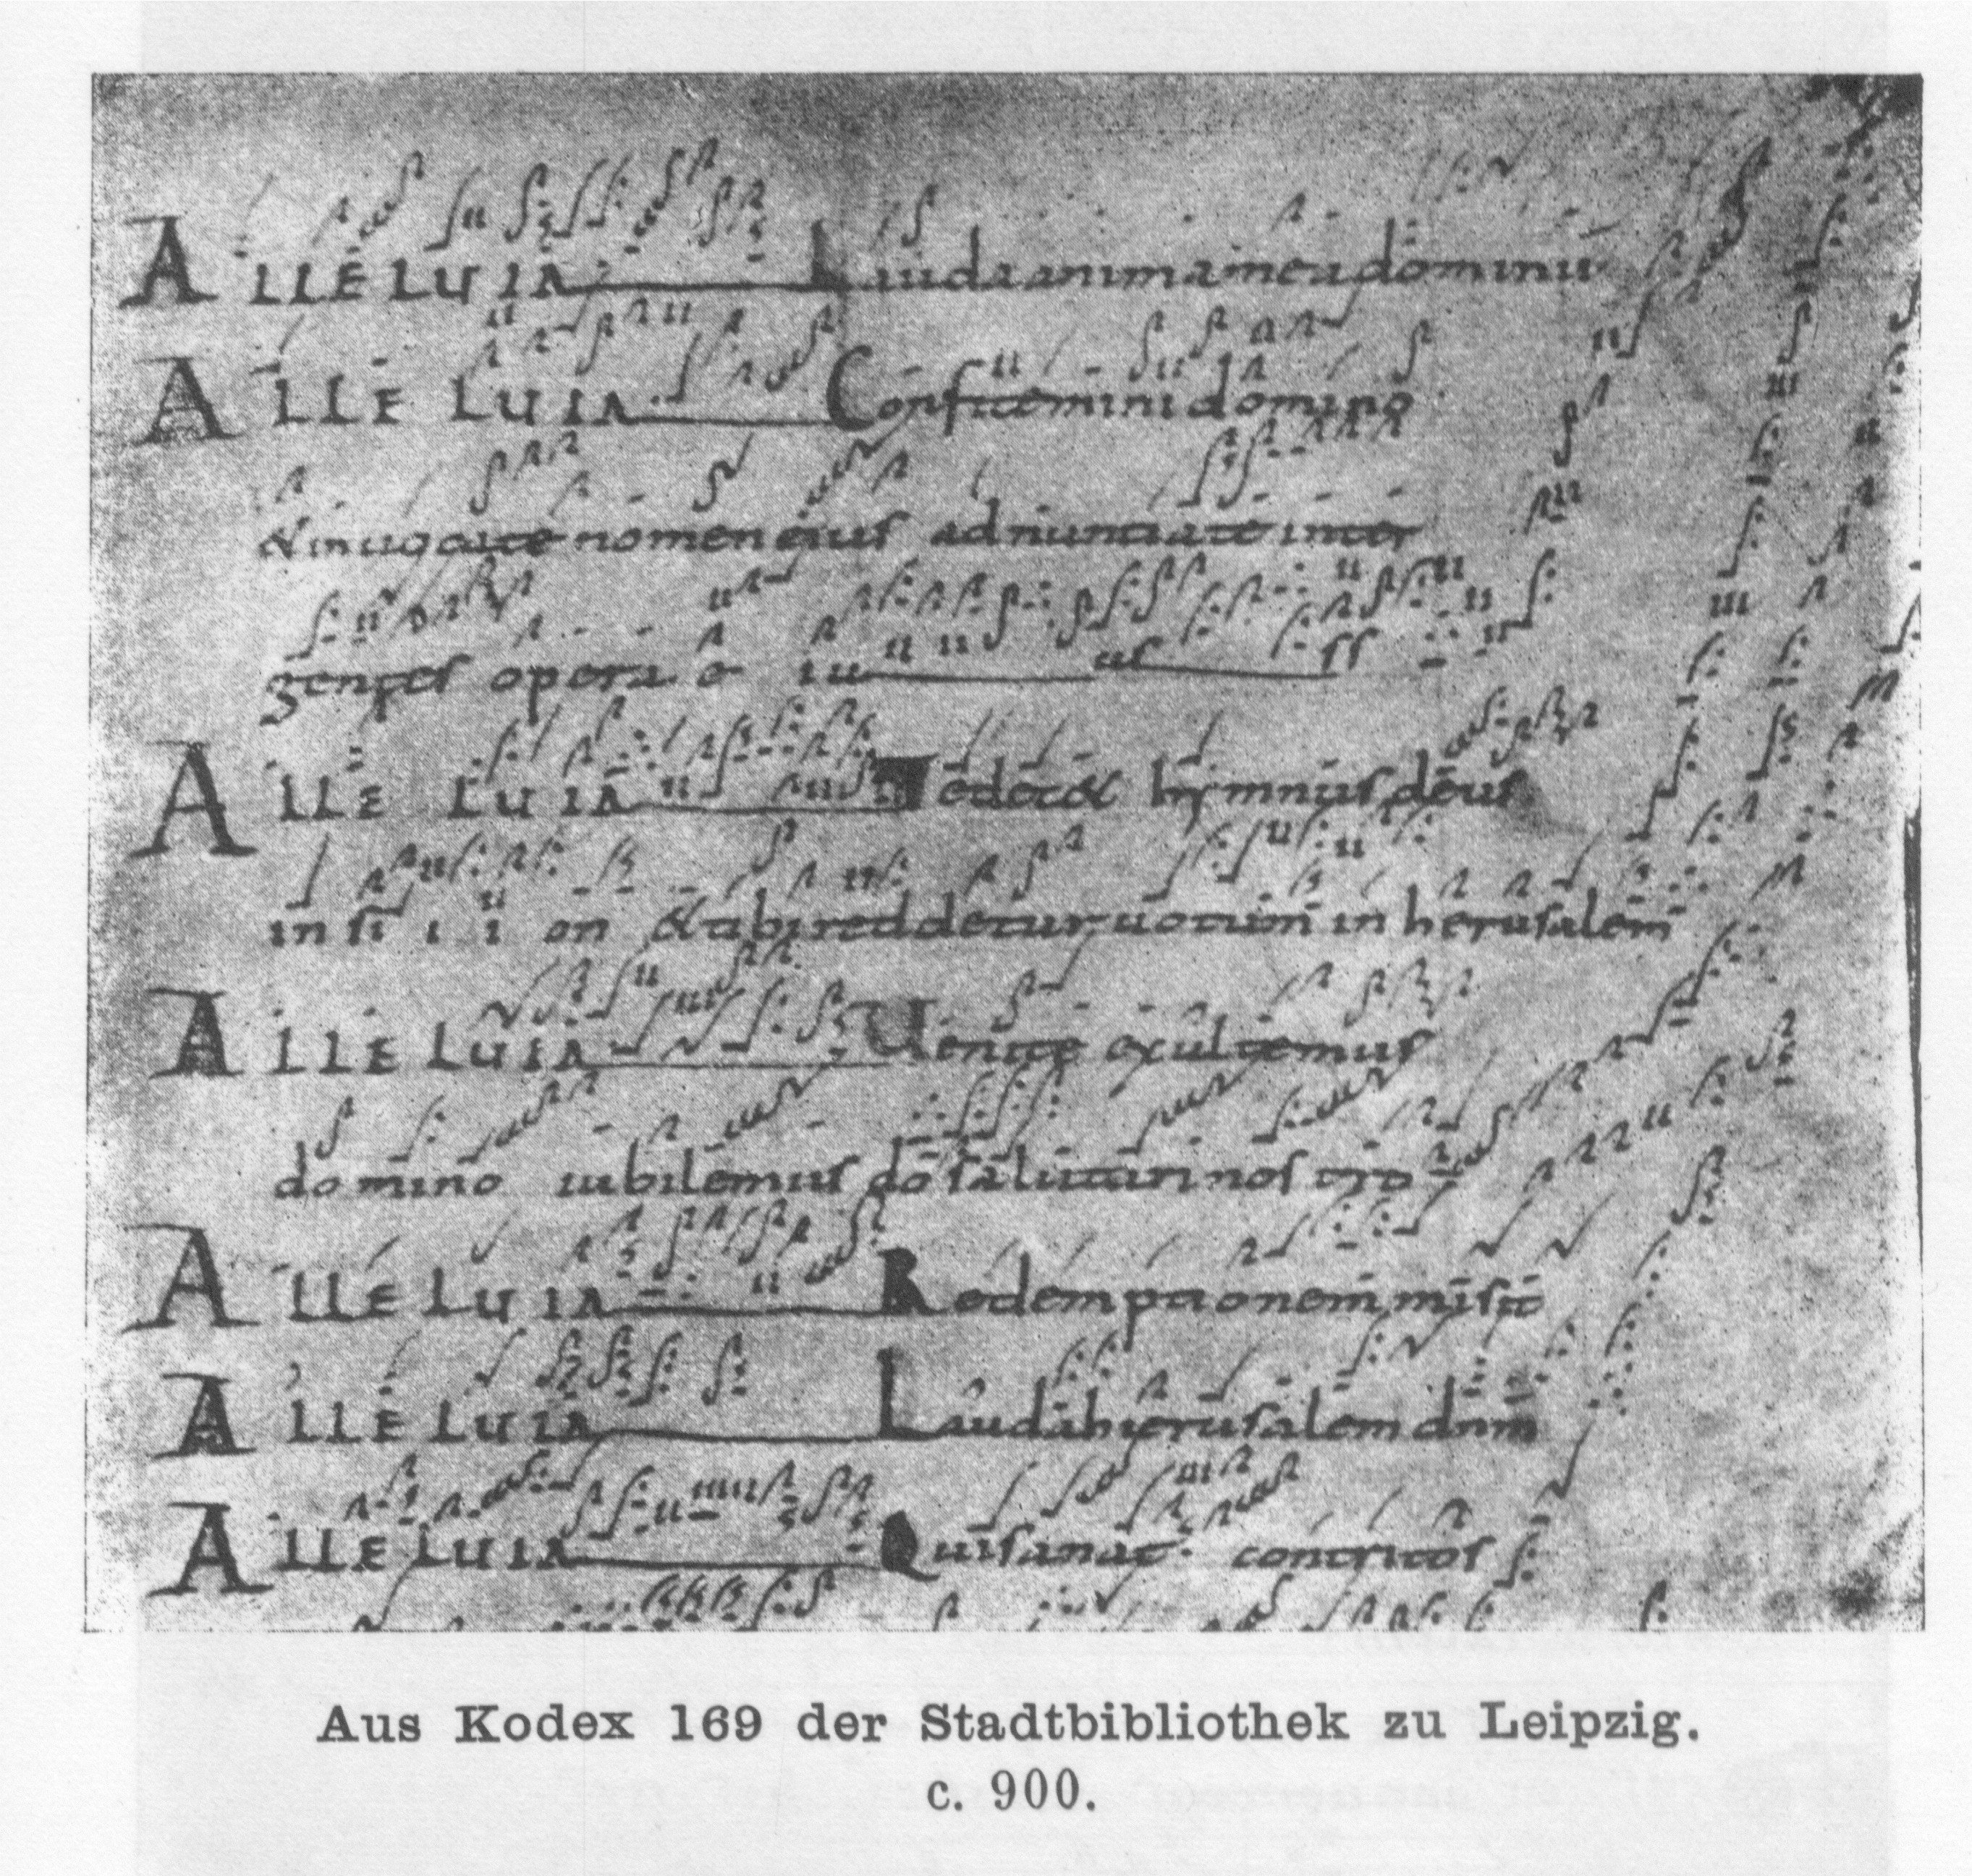 ALLELUIA Lauda anima mea dominū
ALLELUIA Confitemini domino
& inuocate nomen eius adnuntiate inter
gentes opera e iu us
ALLELUIA Te dec& hymnus deus
in si i i on & tibi reddetur uotum in herusalem
ALLELUIA Uenite exultemus
domino iubilemus dō salutari nostro
ALLELUIA Redemptionem misit
ALLELUIA Lauda hierusalem dnm
ALLELUIA Qui sanat contritos
Aus Kodex 169 der Stadtbibliothek zu Leipzig.
c. 900.